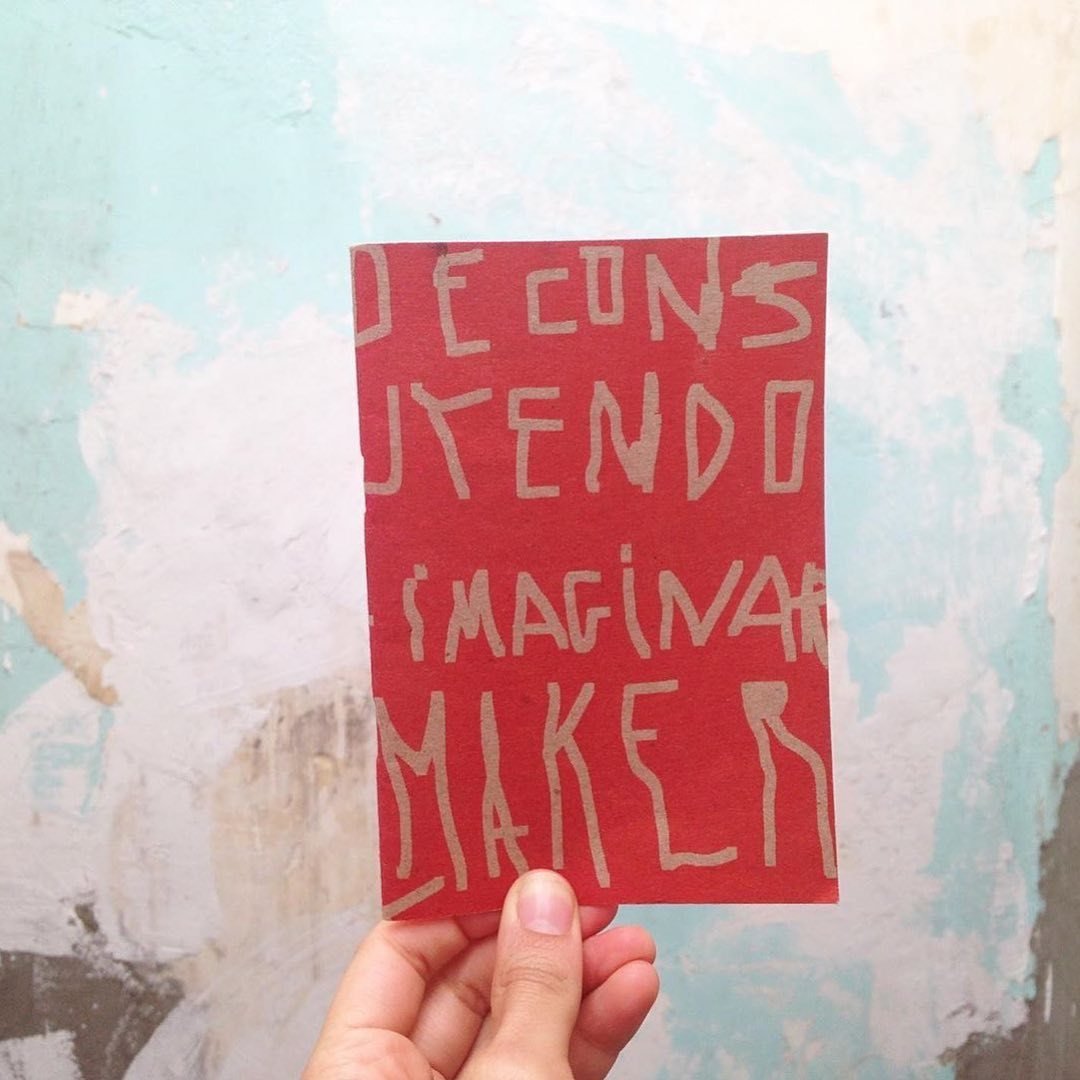 DECONS
UYENDO
IMAGINAR
MAKER